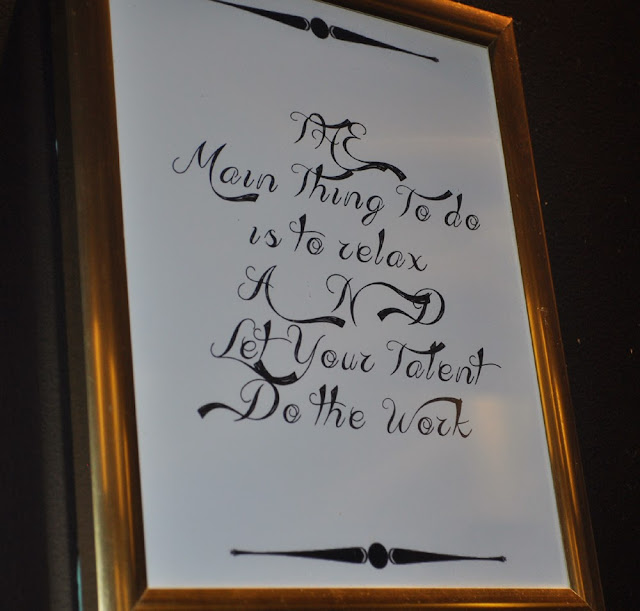 THE
Main Thing To do
is to relax
AND
Let Your Talent
Do the Work